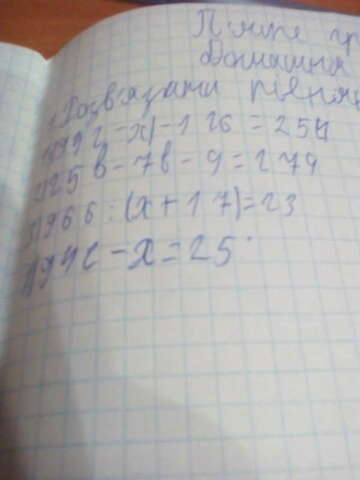 П'яте гр
Домашня
Розв'язати рівня
1)(942-x)-126=254
2)25в-7в-9=279
3)966:(x+17)=23
1)942-x=25